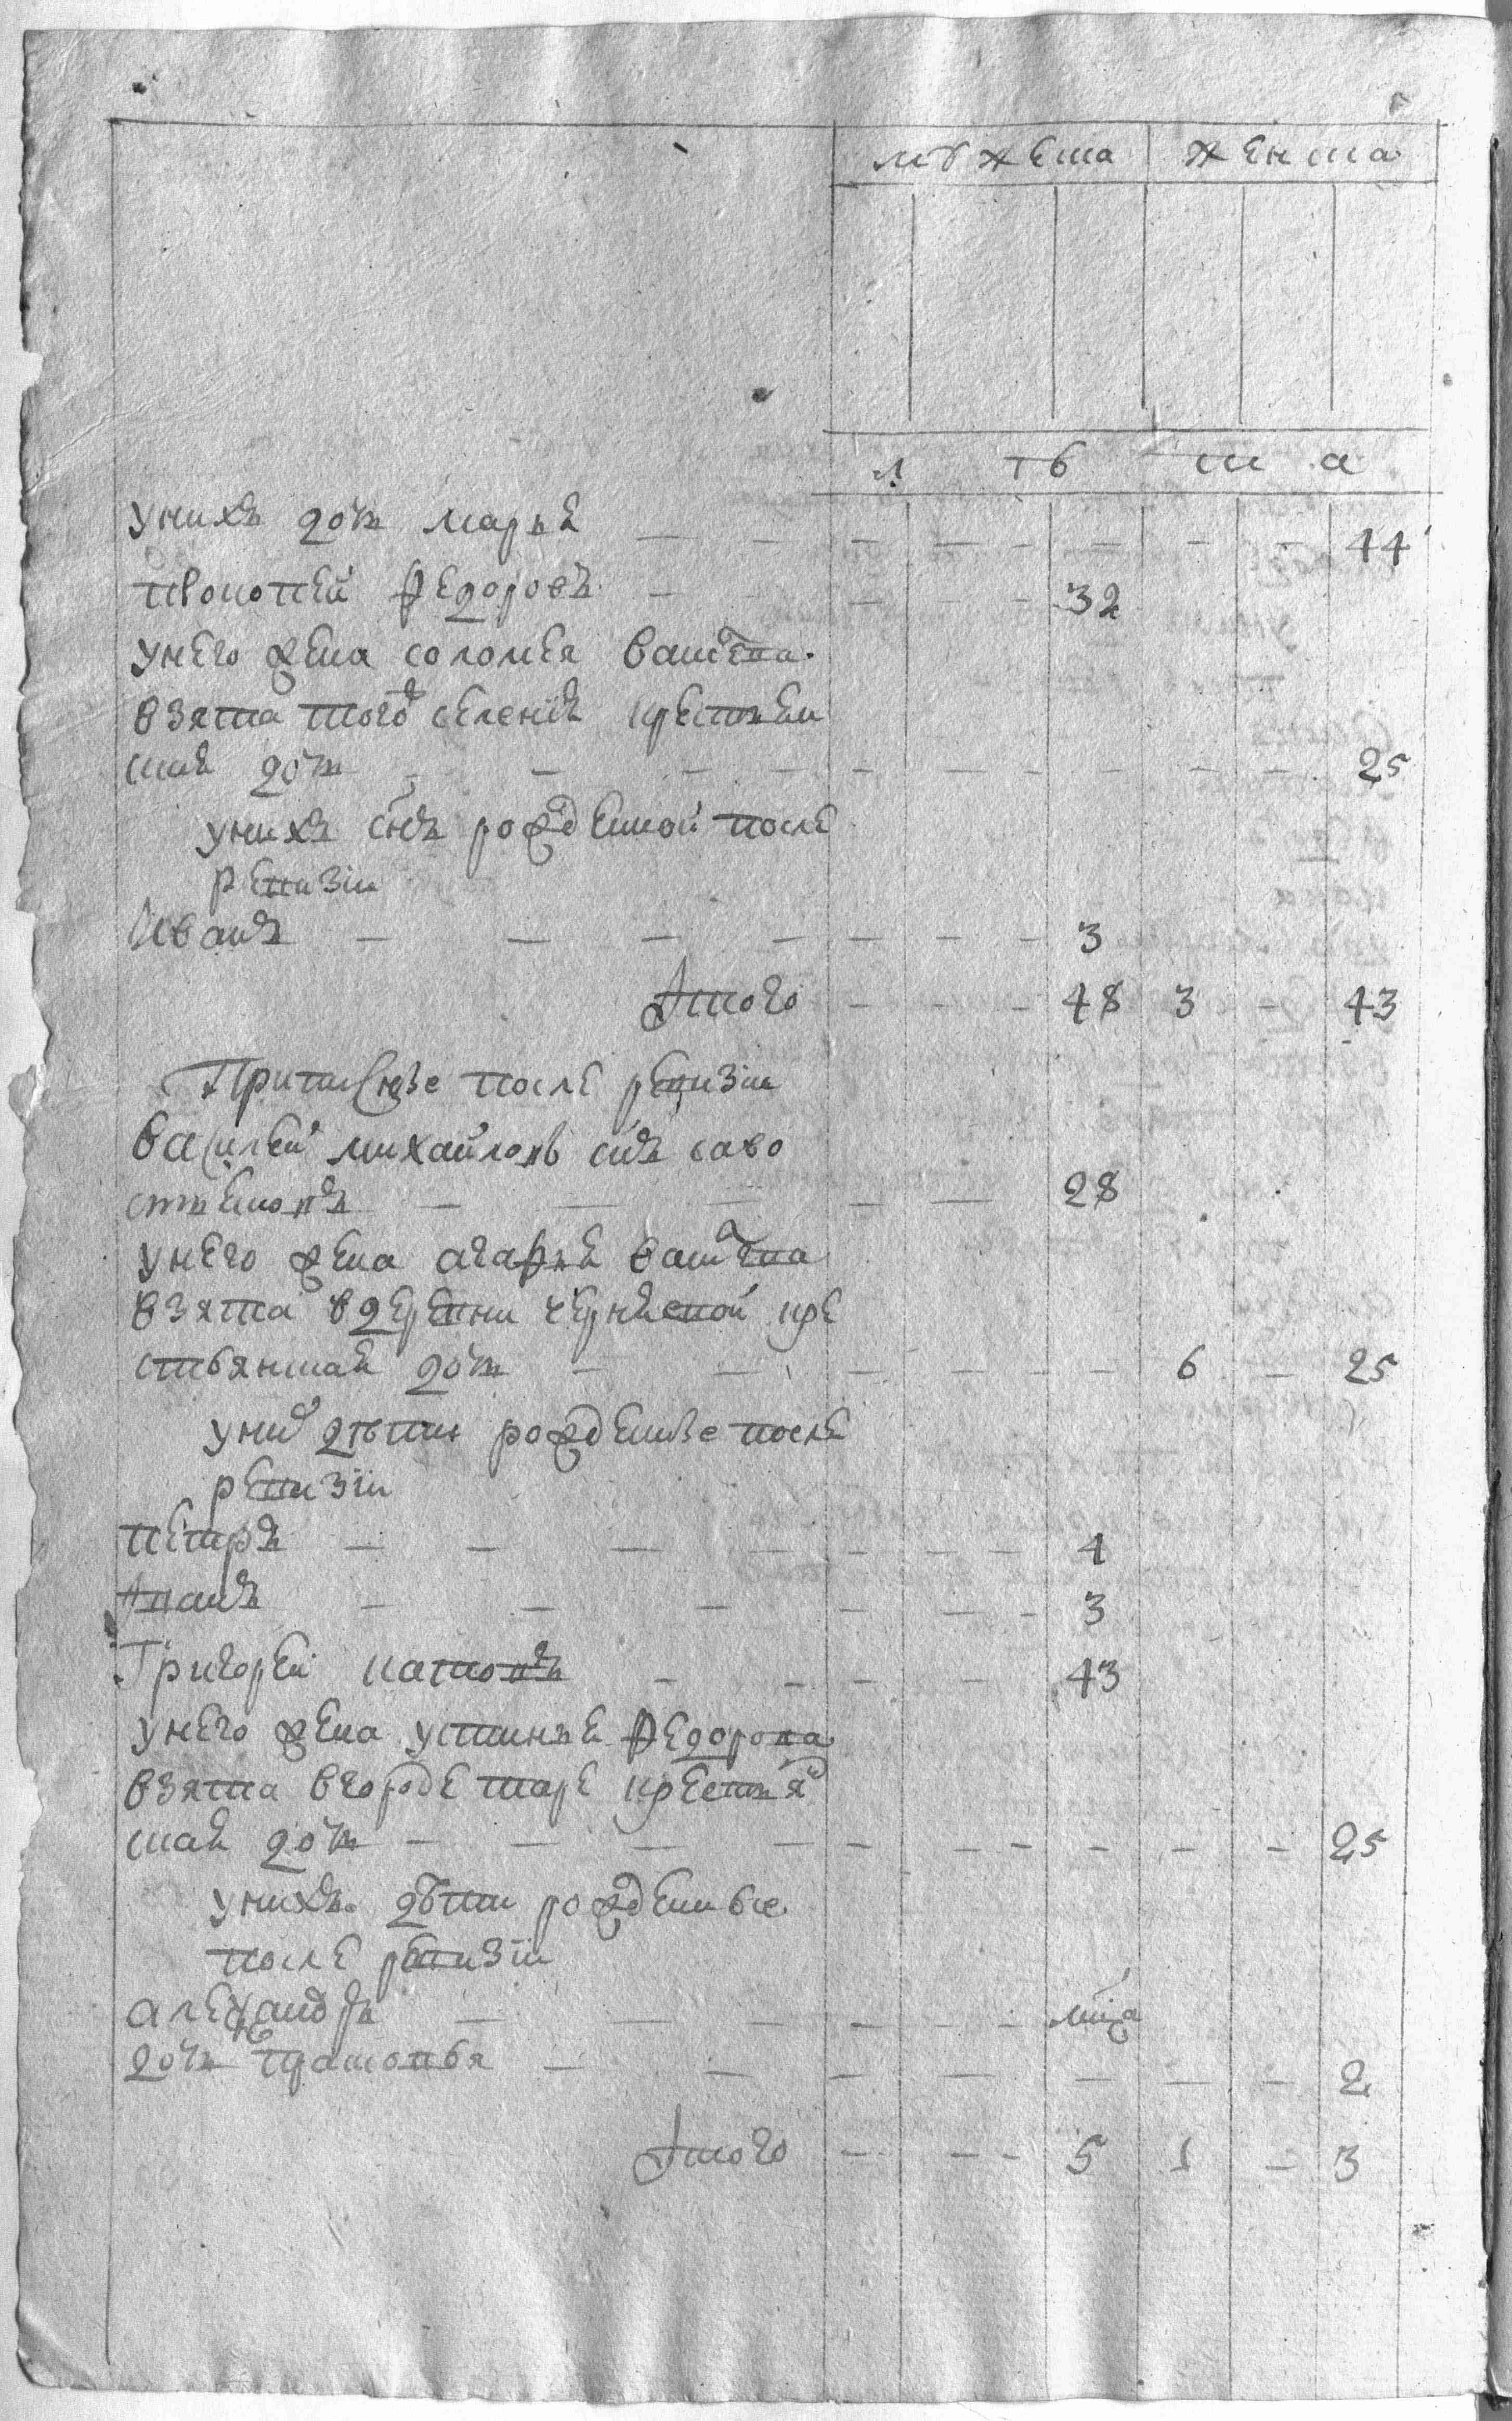 мужеска женска
лѣта
у нихъ дочь марья 44
прокопей федоровъ 32
у него жена соломея
взята тогож селения крестьян
ская дочь 25
у нихъ снъ рожденной после
ревизiи
Иванъ 3
Итого 48 3 43
После ревизiи
василей михайловъ снъ саво
стьяновъ 28
у него жена агафья
взята в деревни крe
стьянская дочь 6 25
у них дѣти рожденые после
ревизiи
петръ 4
Иванъ 3
Григорей 43
у него жена устинья федорова
взята в городе таре крестьян
ская дочь 25
у нихъ дѣти рожденные
после ревизiи
александръ мца
дочь 2
Итого 5 1 3